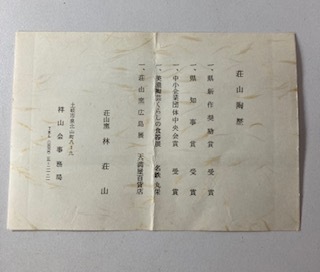 荘山陶歴
一、県新作奨励賞 受賞
一、県知事賞 受賞
一、中小企業団体中央会賞 受賞
一、美濃陶芸くらしの食器展 名鉄 丸栄
一、荘山窯広島展 天満屋百貨店
荘山窯 林荘山
土岐市
祥山会事務局